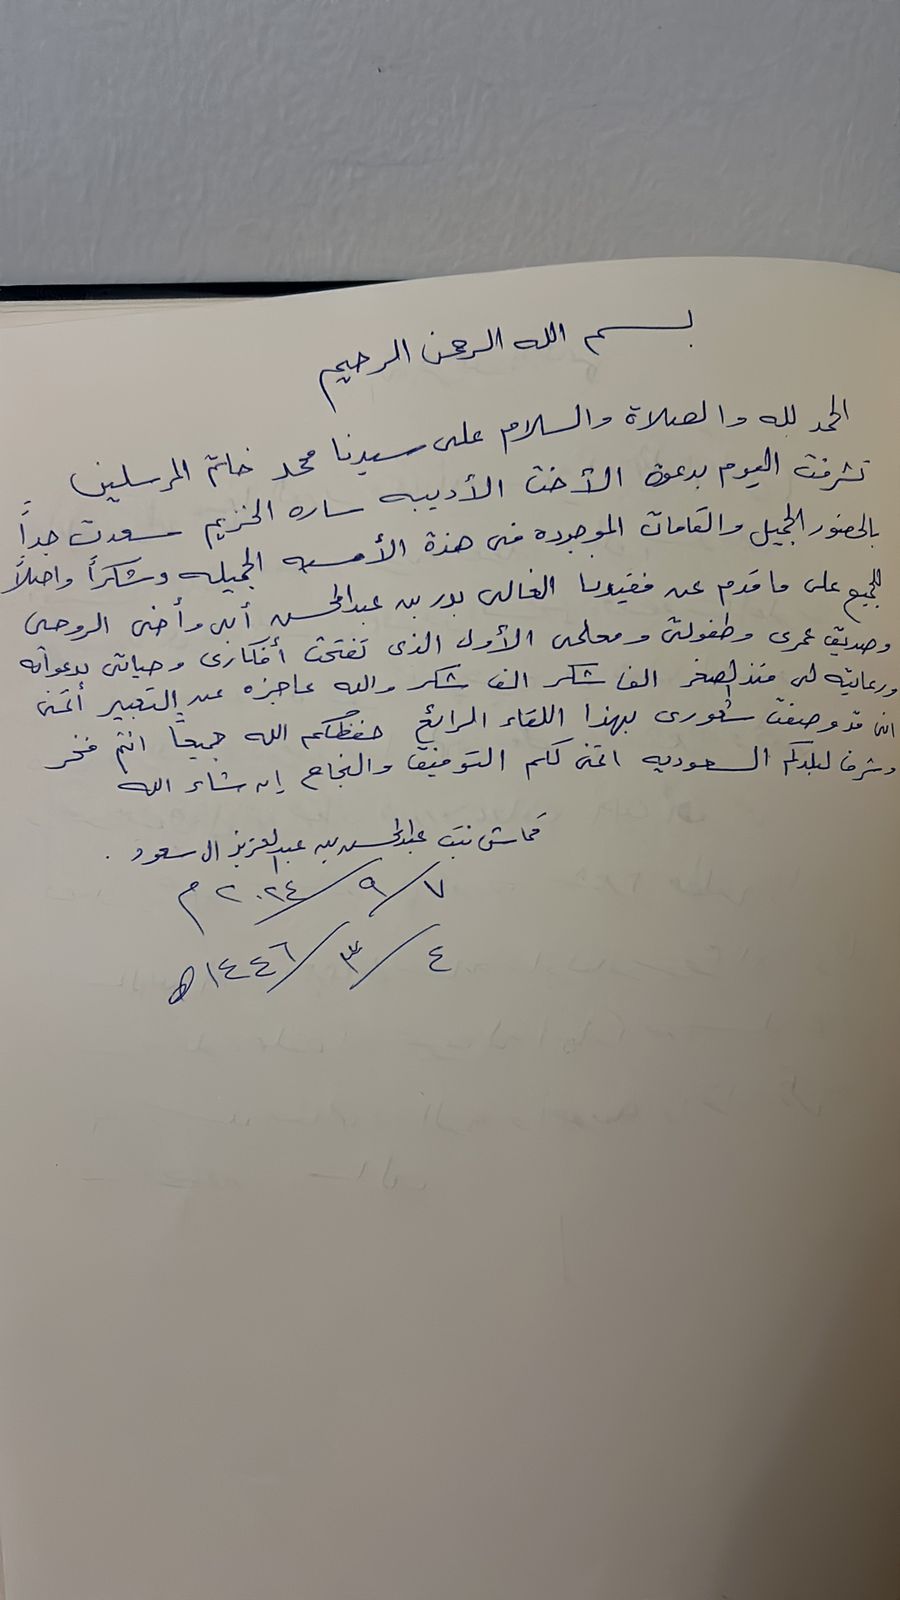 بسم الله الرحمن الرحيم
الحمد لله والصلاة والسلام على سيدنا محمد خاتم المرسلين
تشرفت اليوم بدعوة الأخت الأديبه ساره الخزيم سعدت جداً
بالحضور الجميل والقامات الموجوده في هذة الأمسيه الجميله وشكراً واصلاً
للجميع على ما قدم عن فقيدنا الغالي بدر بن عبدالمحسن أبي وأخي الروحي
وصديق عمري وطفولتي ومعلمي الأول الذي تفتحت أفكاري وحياتي بدعواته
ورعايته لي منذ الصغر الف شكر الف شكر والله عاجزه عن التعبير أتمنى
اني قد وصفت شعوري بهذا اللقاء الرائع حفظكم الله جميعاً انتم فخر
وشرف لبلدكم السعوديه اتمنى لكم التوفيق والنجاح إن شاء الله
قماش بنت عبدالمحسن بن عبدالعزيز ال سعود .
٧ / ٩ / ٢٠٢٤ م
٤ / ٣ / ١٤٤٦ ه